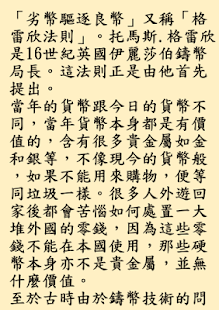 「劣幣驅逐良幣」又稱「格
雷欣法則」。托馬斯.格雷欣
是16世紀英國伊麗莎伯鑄幣
局長。這法則正是由他首先
提出。
當年的貨幣跟今日的貨幣不
同，當年貨幣本身都是有價
值的，含有很多貴金屬如金
和銀等，不像現今的貨幣般
，如果不能用來購物，便等
同垃圾一樣。很多人外遊回
家後都會苦惱如何處置一大
堆外國的零錢，因為這些零
錢不能在本國使用，那些硬
幣本身亦不是貴金屬，並無
什麼價值。
至於古時由於鑄幣技術的問